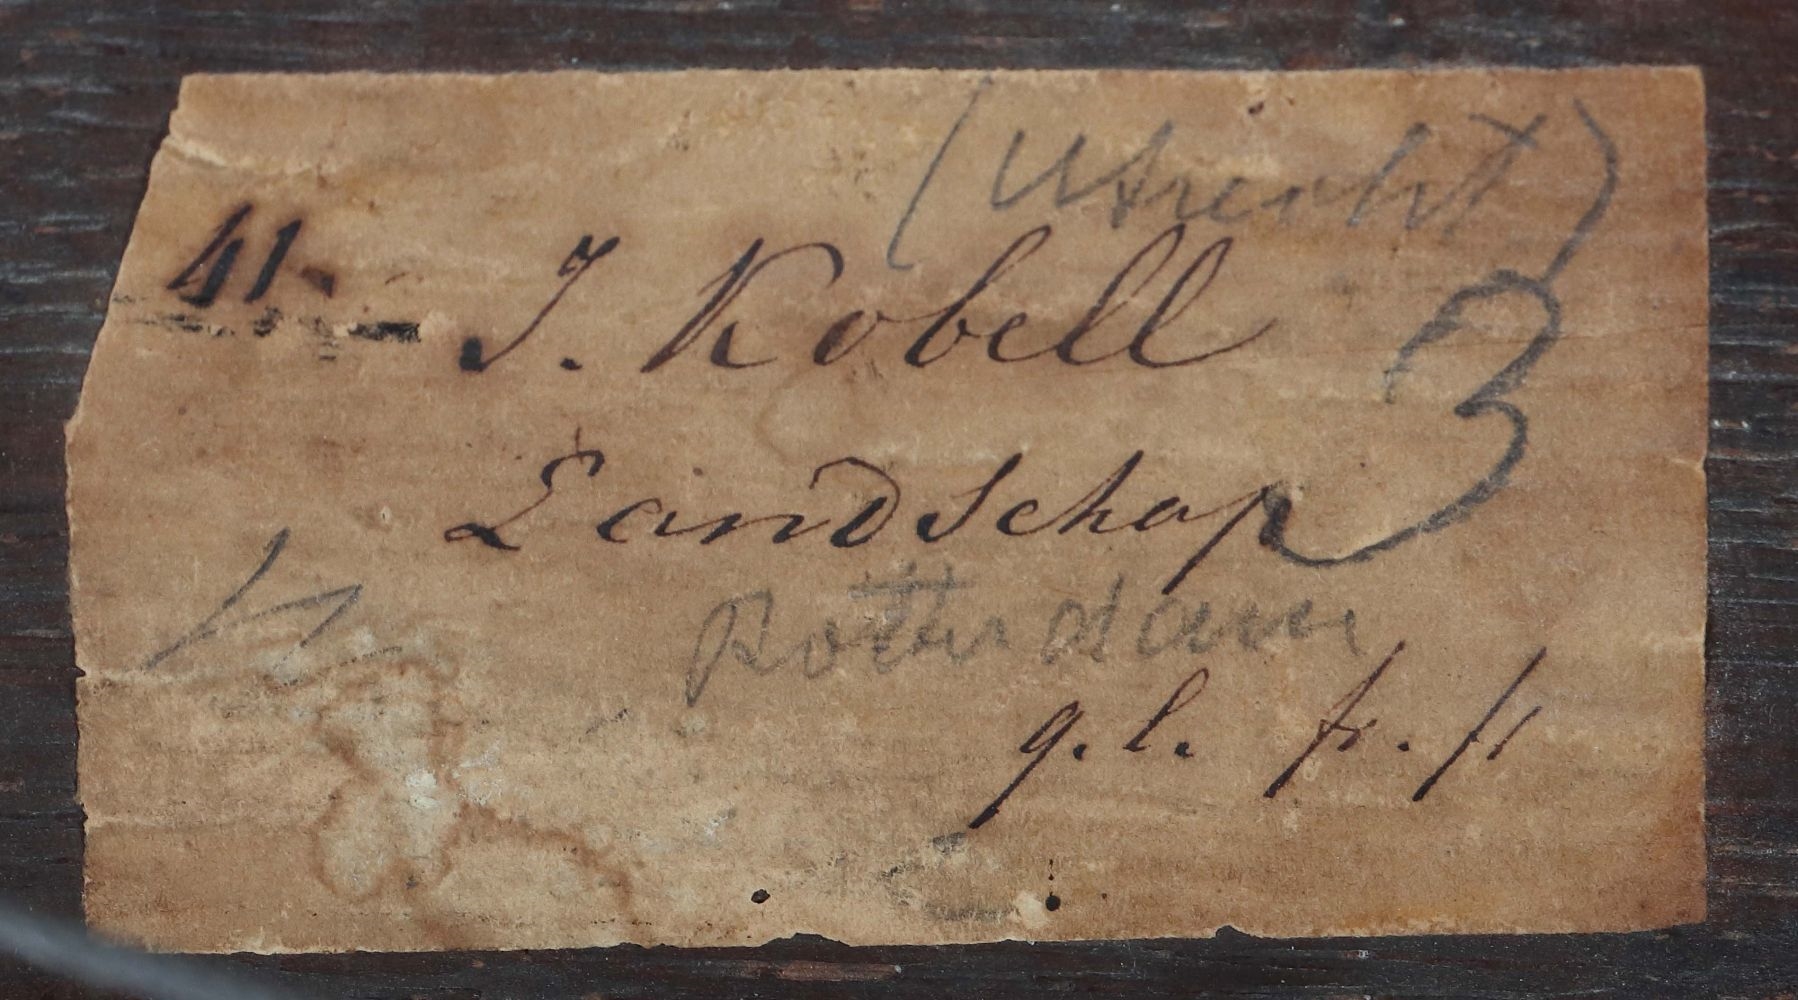 (Utrecht)
41. J. Kobell
3
Landschap
Rotterdam
g. l. fr.